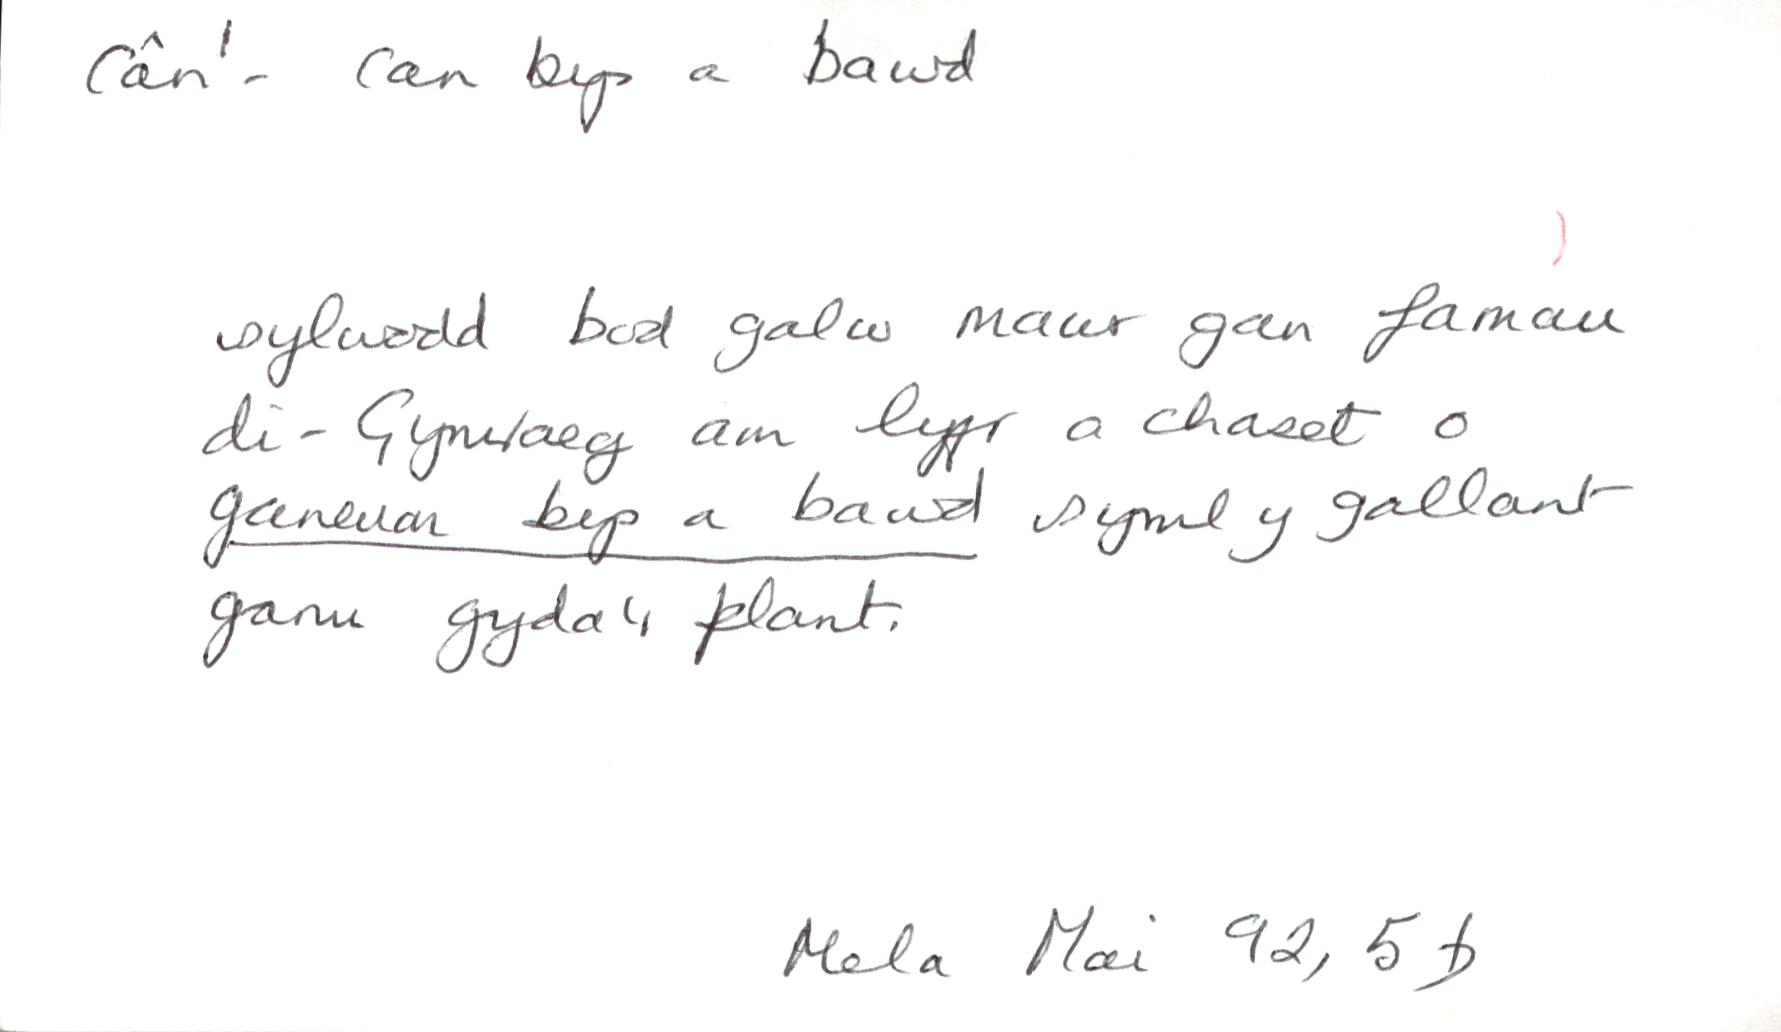 cân¹- can bys a bawd
sylwodd bod galw mawr gan famau
di-Gymraeg am lyfr a chaset o
ganeuon bys a bawd syml y gallant
ganu gyda'u plant.
Mela Mai 92, 5b